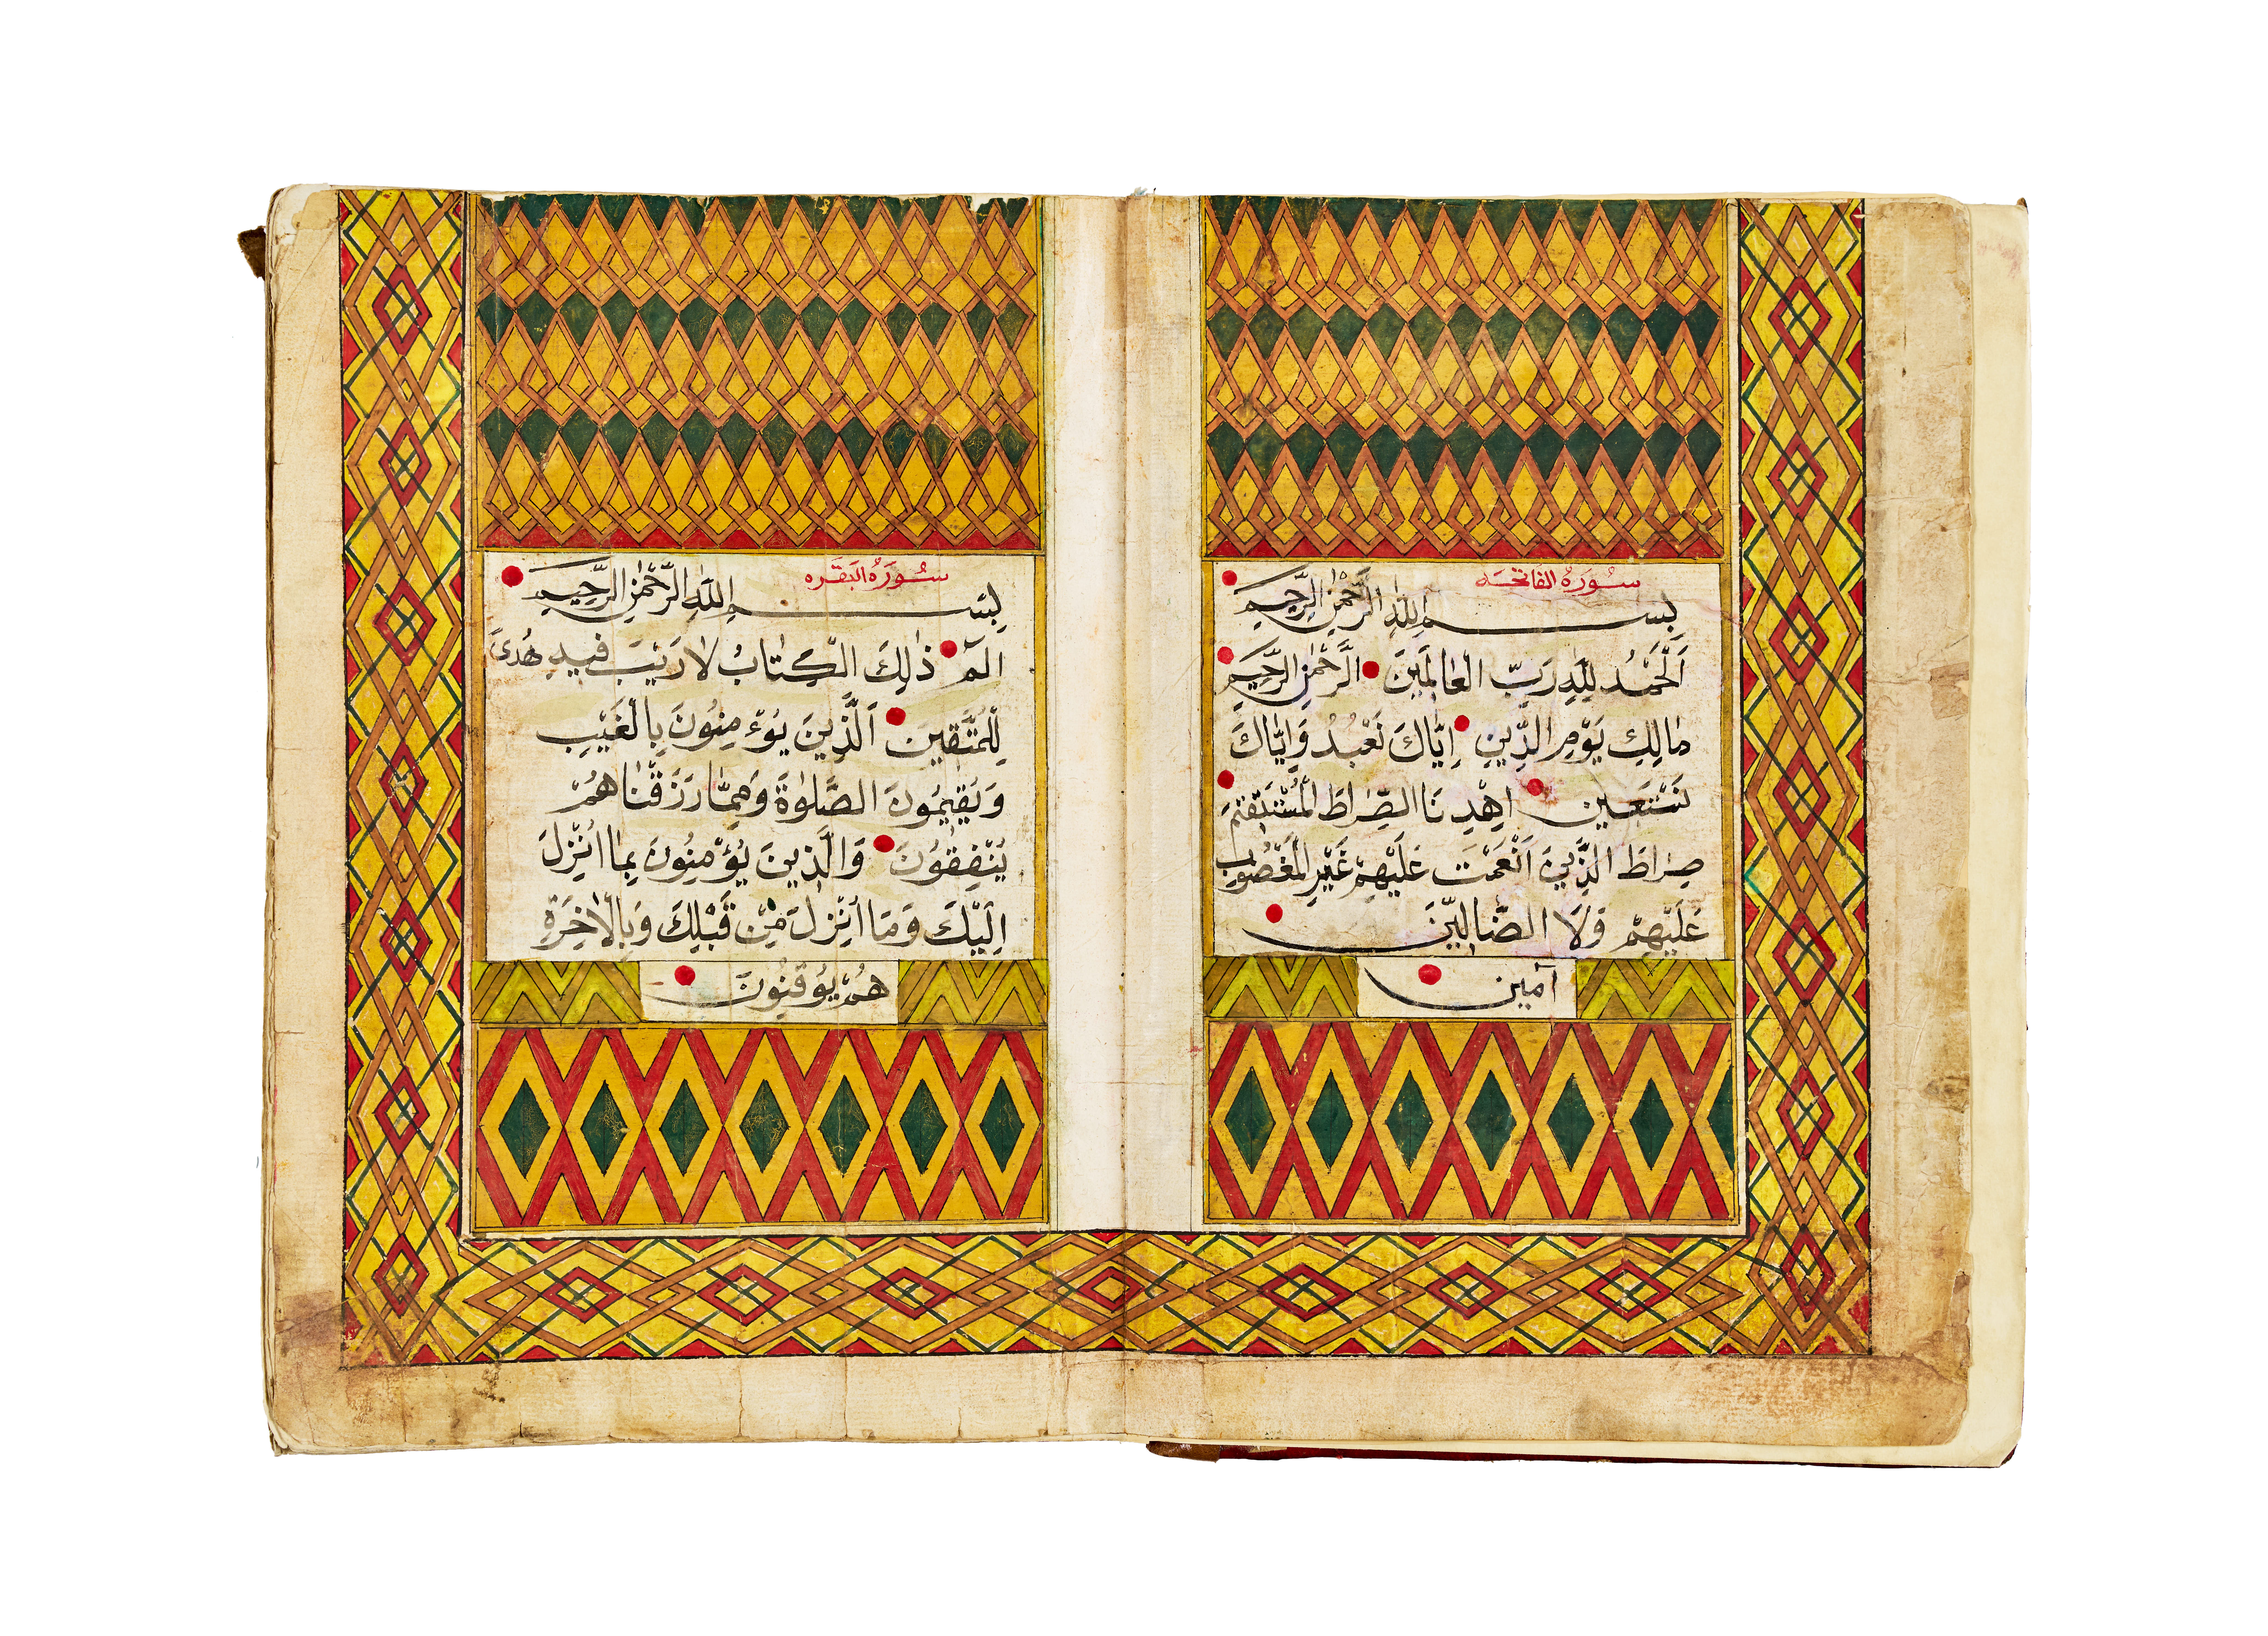 سُورَةُ الفَاتِحَه
بِسْمِ اللّٰهِ الرَّحْمٰنِ الرَّحِيمِ
اَلْحَمْدُ لِلّٰهِ رَبِّ الْعَالَمِينَ الرَّحْمٰنِ الرَّحِيمِ
مَالِكِ يَوْمِ الدِّينِ اِيَّاكَ نَعْبُدُ وَاِيَّاكَ
نَسْتَعِينُ اِهْدِنَا الصِّرَاطَ الْمُسْتَقِيمَ
صِرَاطَ الَّذِينَ اَنْعَمْتَ عَلَيْهِمْ غَيْرِ الْمَغْضُوبِ
عَلَيْهِمْ وَلَا الضَّالِّينَ
آمين
سُورَةُ البَقَره
بِسْمِ اللّٰهِ الرَّحْمٰنِ الرَّحِيمِ
الٓمٓ ذٰلِكَ الْكِتَابُ لَا رَيْبَ فِيهِ هُدًى
لِلْمُتَّقِينَ اَلَّذِينَ يُؤْمِنُونَ بِالْغَيْبِ
وَيُقِيمُونَ الصَّلٰوةَ وَمِمَّا رَزَقْنَاهُمْ
يُنْفِقُونَ وَالَّذِينَ يُؤْمِنُونَ بِمَا اُنْزِلَ
اِلَيْكَ وَمَا اُنْزِلَ مِنْ قَبْلِكَ وَبِالْاٰخِرَةِ
هُمْ يُوقِنُونَ